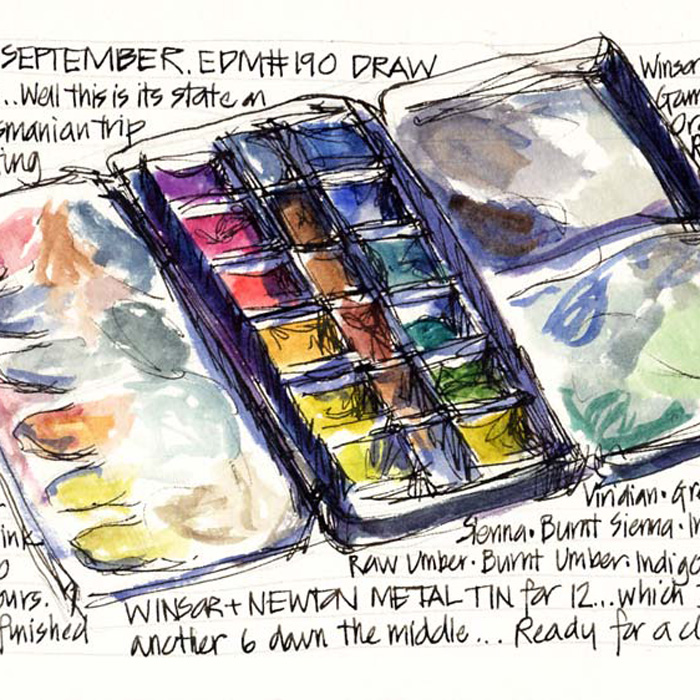 SEPTEMBER. EDM#190 DRAW
...Well this is its state on
smanian trip
ing
Winsor
Gam
Or
R
Viridian · Gr
Sienna · Burnt Sienna · In
Raw Umber · Burnt Umber · Indigo
ink
o
ours.
finished
WINSOR + NEWTON METAL TIN for 12... which
another 6 down the middle... Ready for a cl